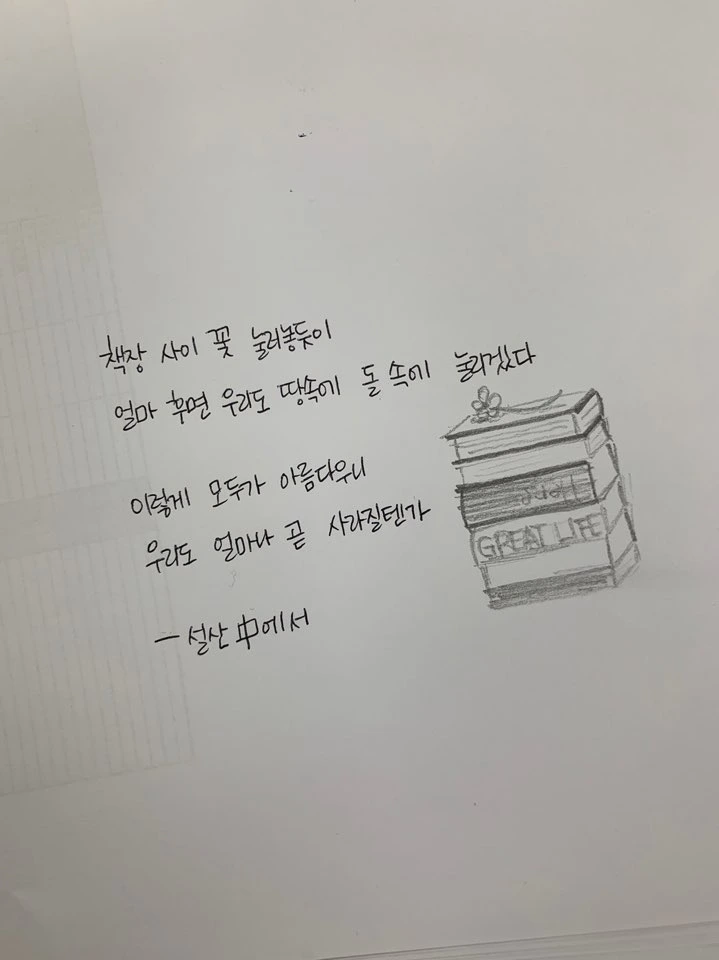 책장 사이 꽃 눌러놓듯이
얼마 후면 우리도 땅속에 돌 속에 눌리겠다
이렇게 모두가 아름다우니
우리도 얼마나 곧 사라질텐가
- 설산 中에서
GREAT LIFE